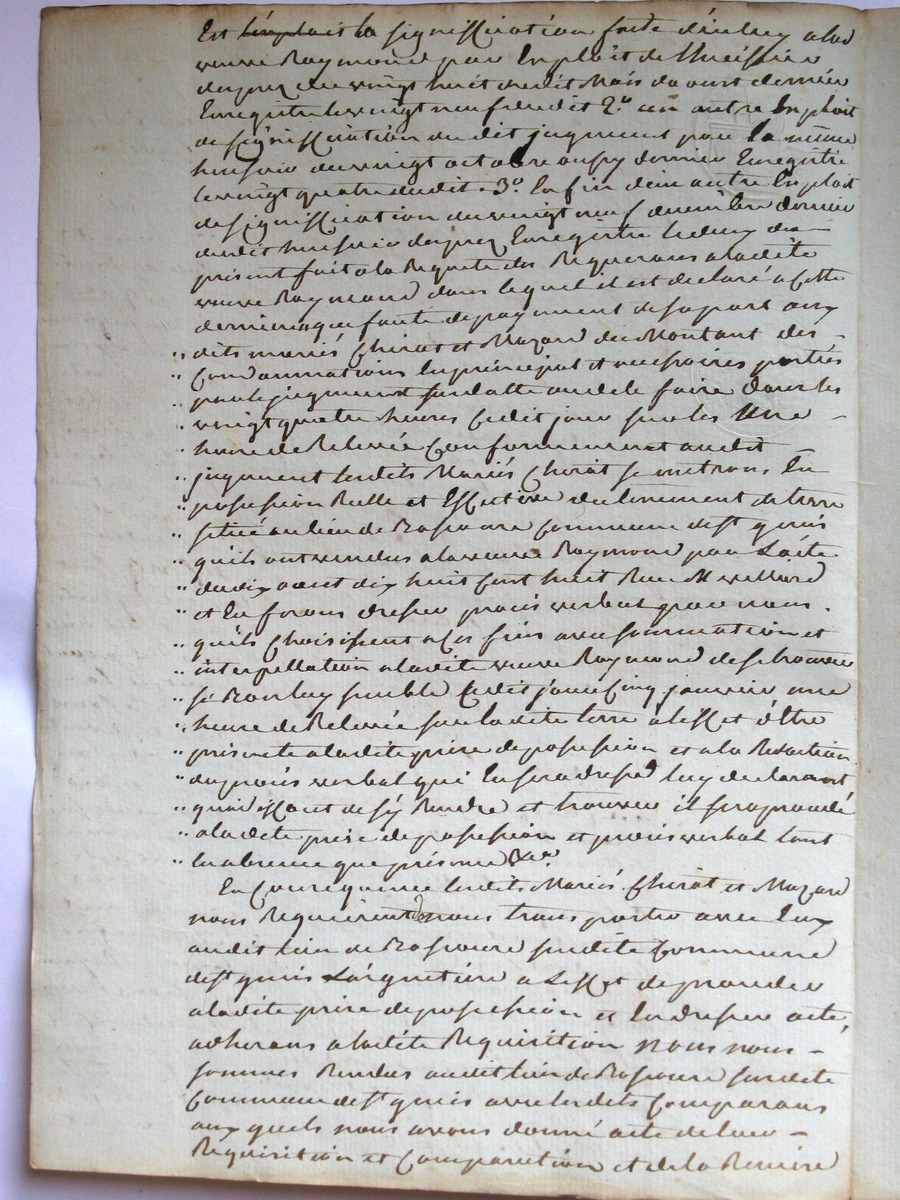 Est la signiffication faite d'icluy a lad
veuve Raymond par Exploit de l'huissier
duprez du vingt huit dudit Mois daoust dernier
Enregistre le vingt neuf dudit 2º un autre Exploit
de signiffication dudit jugement par le même
huissier du vingt octobre aussy dernier Enregistré
le vingt quatre dudit. 3º Enfin d'un autre Exploit
de signiffication du vingt neuf decembre dernier
dudit huissier duprez Enregistré le deux du
présent fait a la Requete des Requerans a ladite
veuve Raymond dans lequel il est declaré a Cette
derniere que faute de payement de sa part aux
„ dits mariés Chirat et Mazard du Montant des -
„ Condamnations En principal et accessoires portées
„ par le jugement susdatté ou de le faire dans les
„ vingt quatre heures Cedit jour sur les Une -
„ heure de Relevée Conformement audit
„ jugement lesdits Mariés Chirat se mettront En
„ possession Reelle et Effective du tenement de terre
„ situé au lieu de Commune de St genis
„ qu'ils ont vendus a la veuve Raymond par L'acte
„ du dix aoust dix huit cent huit Reçu
„ et En feront dresser procès verbal par nous
„ qu'ils Choisissent a Ces fins avec sommation et
„ interpellation a ladite veuve Raymond de se trouver
„ si Bon luy semble Cedit jour Cinq janvier une
„ heure de Relevée sur ladite terre a l'effet d'Etre
„ presente a ladite prise de possession et a la Redaction
„ du procès verbal qui En sera dressé luy declarant
„ qu'a deffaut de s'y Rendre et trouver il sera procedé
„ a ladite prise de possession et procès verbal tant
„ En absence que présence &ca.
En Consequence lesdits Mariés Chirat et Mazard
nous Requierent de nous transporter avec Eux
audit lieu de susdite Commune
de St genis a L'effet de proceder
a ladite prise de possession et En dresser acte,
adherans a ladite Requisition nous nous -
sommes Rendus audit lieu de susdite
Commune de St genis avec lesdits Comparans
aux quels nous avons donné acte de leur -
Requisition et Comparution et de la Remise